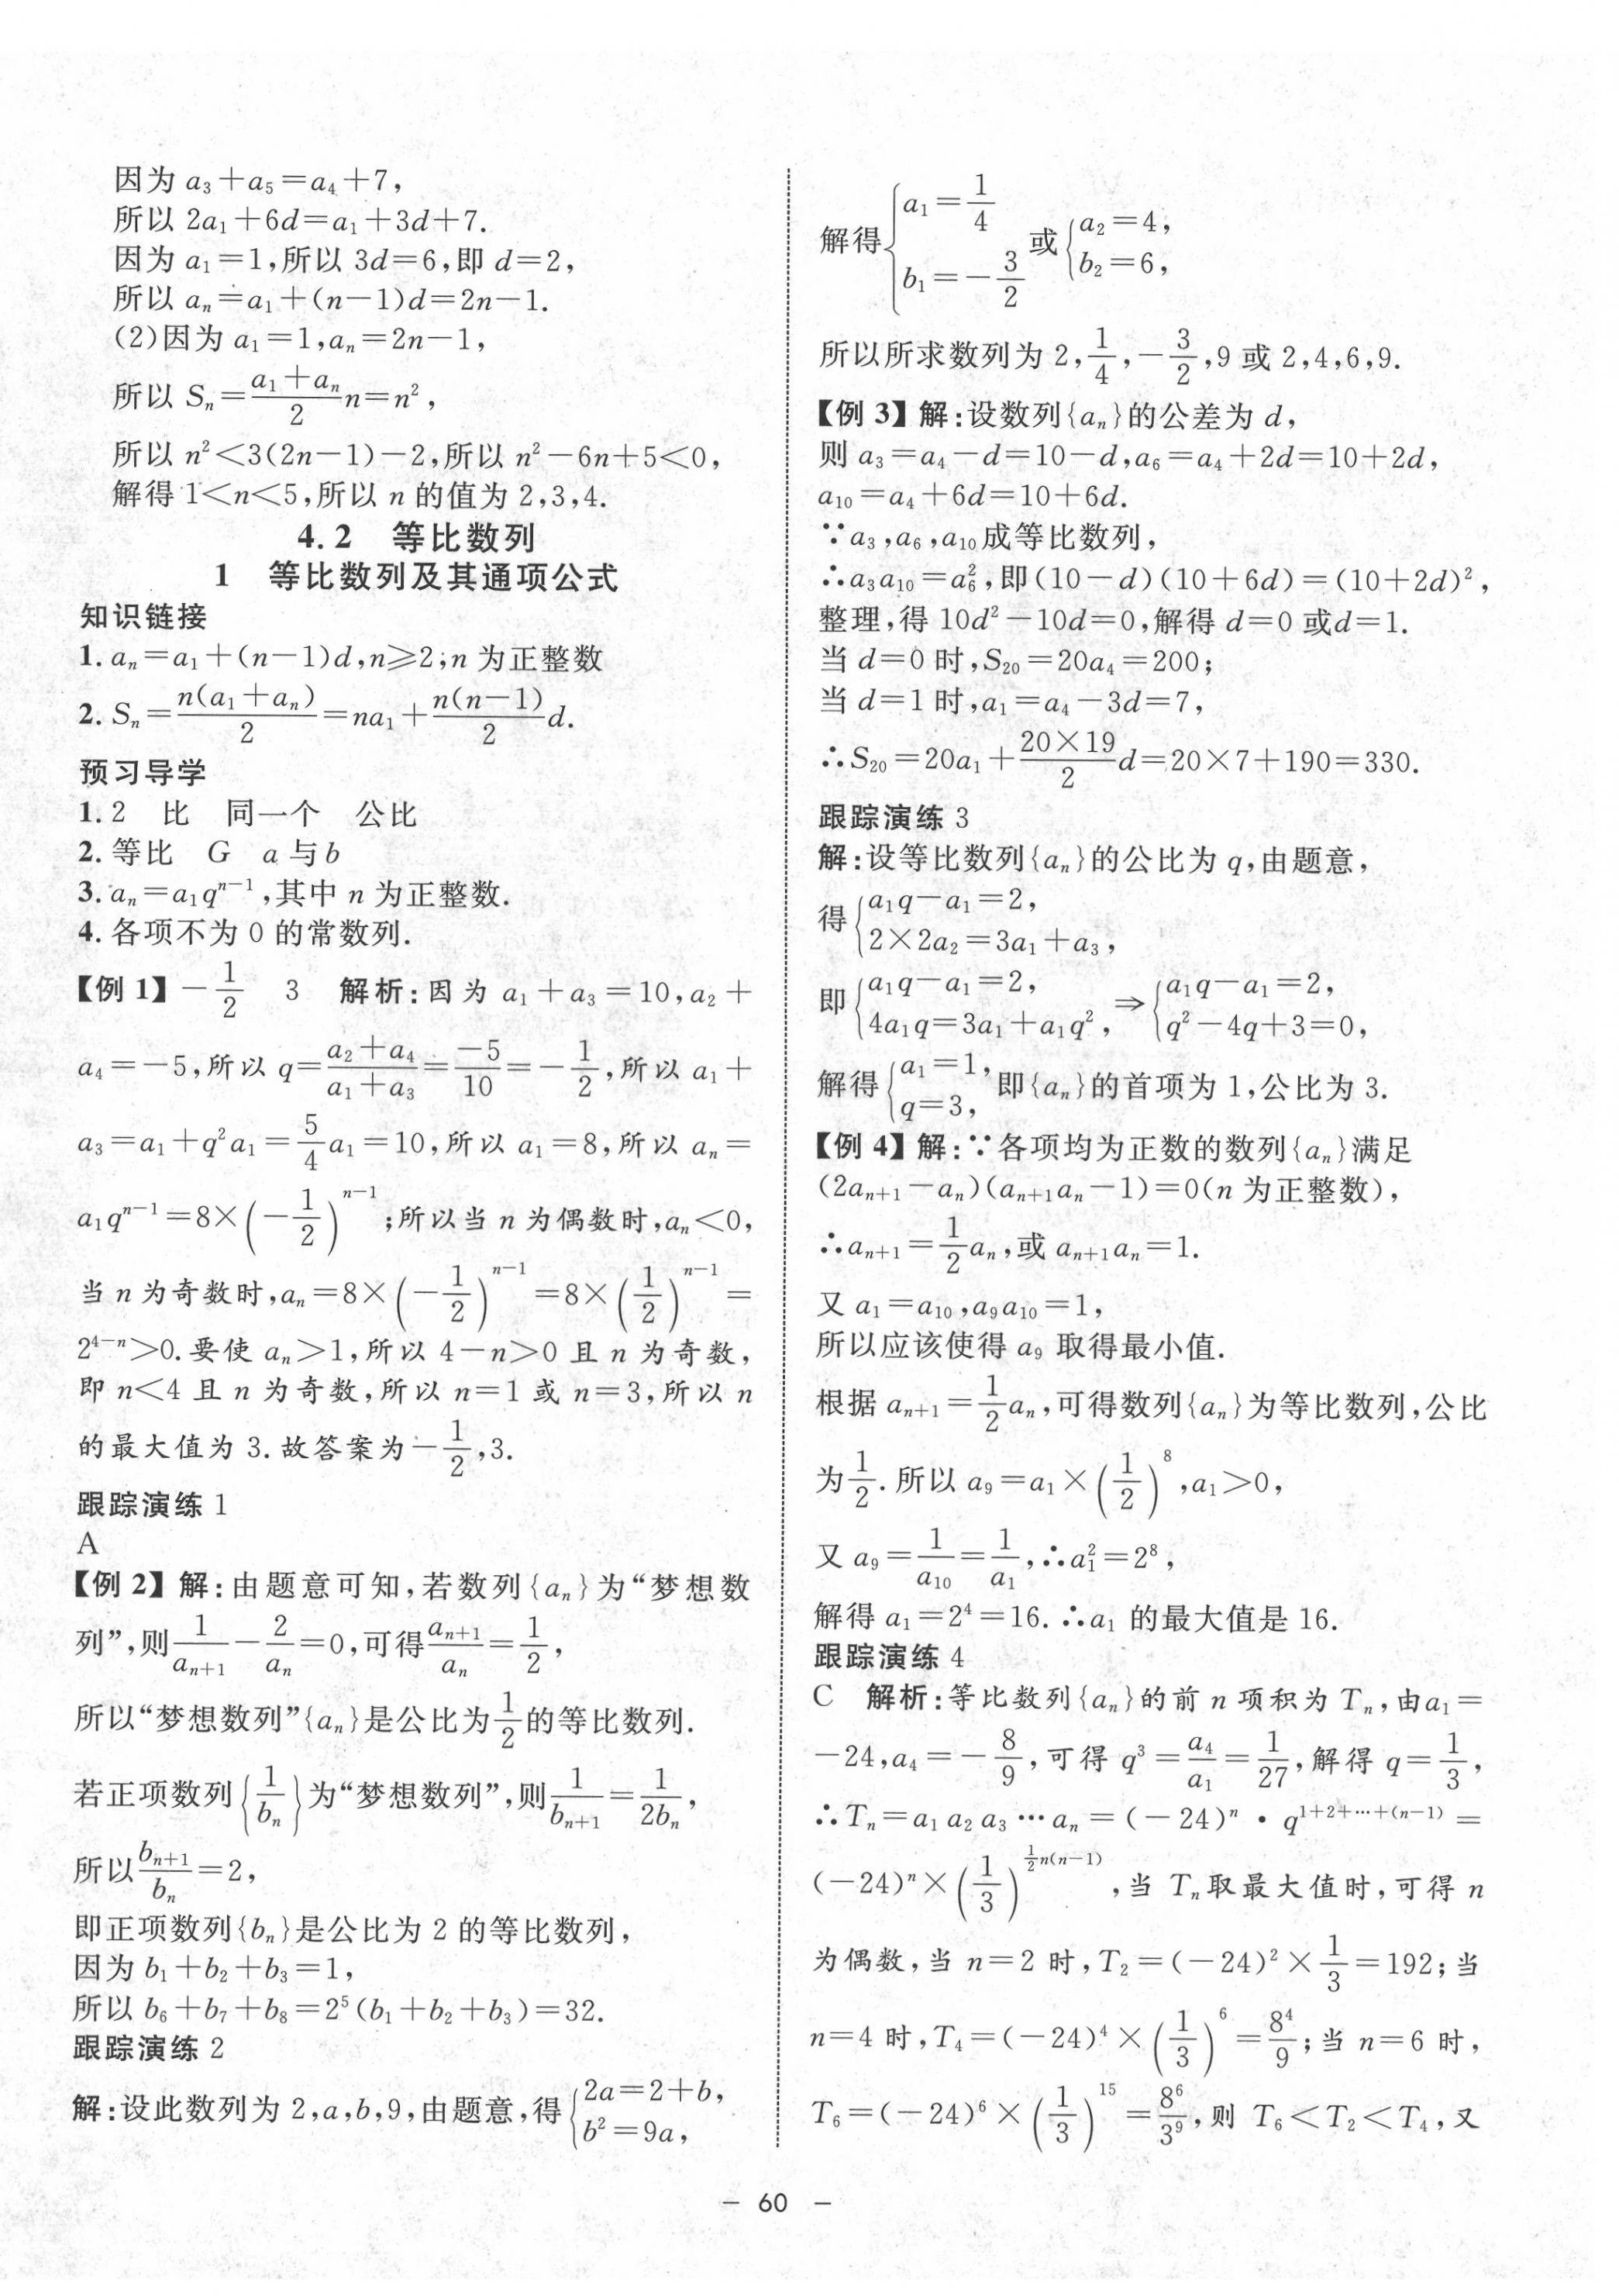 因为 a₃+a₅=a₄+7,
所以 2a₁+6d=a₁+3d+7.
因为 a₁=1,所以 3d=6,即 d=2,
所以 aₙ=a₁+(n-1)d=2n-1.
(2)因为 a₁=1,aₙ=2n-1,
所以 Sₙ=\frac{a₁+aₙ}{2}n=n²,
所以 n²<3(2n-1)-2,所以 n²-6n+5<0,
解得 1<n<5,所以 n 的值为 2,3,4.
4.2 等比数列
1 等比数列及其通项公式
知识链接
1. aₙ=a₁+(n-1)d,n≥2;n 为正整数
2. Sₙ=\frac{n(a₁+aₙ)}{2}=na₁+\frac{n(n-1)}{2}d.
预习导学
1. 2 比 同一个 公比
2. 等比 G a 与 b
3. aₙ=a₁qⁿ⁻¹,其中 n 为正整数.
4. 各项不为 0 的常数列.
【例 1】-\frac{1}{2} 3 解析:因为 a₁+a₃=10,a₂+
a₄=-5,所以 q=\frac{a₂+a₄}{a₁+a₃}=\frac{-5}{10}=-\frac{1}{2},所以 a₁+
a₃=a₁+q²a₁=\frac{5}{4}a₁=10,所以 a₁=8,所以 aₙ=
a₁qⁿ⁻¹=8×(-\frac{1}{2})ⁿ⁻¹;所以当 n 为偶数时,aₙ<0,
当 n 为奇数时,aₙ=8×(-\frac{1}{2})ⁿ⁻¹=8×(\frac{1}{2})ⁿ⁻¹=
2⁴⁻ⁿ>0.要使 aₙ>1,所以 4-n>0 且 n 为奇数,
即 n<4 且 n 为奇数,所以 n=1 或 n=3,所以 n
的最大值为 3.故答案为-\frac{1}{2},3.
跟踪演练 1
A
【例 2】解:由题意可知,若数列{aₙ}为“梦想数
列”,则\frac{1}{aₙ₊₁}-\frac{2}{aₙ}=0,可得\frac{aₙ₊₁}{aₙ}=\frac{1}{2},
所以“梦想数列”{aₙ}是公比为\frac{1}{2}的等比数列.
若正项数列{\frac{1}{bₙ}}为“梦想数列”,则\frac{1}{bₙ₊₁}=\frac{1}{2bₙ},
所以\frac{bₙ₊₁}{bₙ}=2,
即正项数列{bₙ}是公比为 2 的等比数列,
因为 b₁+b₂+b₃=1,
所以 b₆+b₇+b₈=2⁵(b₁+b₂+b₃)=32.
跟踪演练 2
解:设此数列为 2,a,b,9,由题意,得{2a=2+b, b²=9a,
解得{a₁=\frac{1}{4} b₁=-\frac{3}{2} 或{a₂=4, b₂=6,
所以所求数列为 2,\frac{1}{4},-\frac{3}{2},9 或 2,4,6,9.
【例 3】解:设数列{aₙ}的公差为 d,
则 a₃=a₄-d=10-d,a₆=a₄+2d=10+2d,
a₁₀=a₄+6d=10+6d.
∵a₃,a₆,a₁₀成等比数列,
∴a₃a₁₀=a₆²,即(10-d)(10+6d)=(10+2d)²,
整理,得 10d²-10d=0,解得 d=0 或d=1.
当 d=0 时,S₂₀=20a₄=200;
当 d=1 时,a₁=a₄-3d=7,
∴S₂₀=20a₁+\frac{20×19}{2}d=20×7+190=330.
跟踪演练 3
解:设等比数列{aₙ}的公比为 q,由题意,
得{a₁q-a₁=2, 2×2a₂=3a₁+a₃,
即{a₁q-a₁=2, 4a₁q=3a₁+a₁q², ⇒{a₁q-a₁=2, q²-4q+3=0,
解得{a₁=1, q=3, 即{aₙ}的首项为 1,公比为 3.
【例 4】解:∵各项均为正数的数列{aₙ}满足
(2aₙ₊₁-aₙ)(aₙ₊₁aₙ-1)=0(n 为正整数),
∴aₙ₊₁=\frac{1}{2}aₙ,或 aₙ₊₁aₙ=1.
又 a₁=a₁₀,a₉a₁₀=1,
所以应该使得 a₉ 取得最小值.
根据 aₙ₊₁=\frac{1}{2}aₙ,可得数列{aₙ}为等比数列,公比
为\frac{1}{2}.所以 a₉=a₁×(\frac{1}{2})⁸,a₁>0,
又 a₉=\frac{1}{a₁₀}=\frac{1}{a₁},∴a₁²=2⁸,
解得 a₁=2⁴=16.∴a₁ 的最大值是 16.
跟踪演练 4
C 解析:等比数列{aₙ}的前 n 项积为 Tₙ,由a₁=
-24,a₄=-\frac{8}{9},可得 q³=\frac{a₄}{a₁}=\frac{1}{27},解得 q=\frac{1}{3},
∴Tₙ=a₁a₂a₃…aₙ=(-24)ⁿ·q^{1+2+…+(n-1)}=
(-24)ⁿ×(\frac{1}{3})^{\frac{1}{2}n(n-1)},当 Tₙ取最大值时,可得 n
为偶数,当 n=2 时,T₂=(-24)²×\frac{1}{3}=192;当
n=4 时,T₄=(-24)⁴×(\frac{1}{3})⁶=\frac{8⁴}{9};当 n=6 时,
T₆=(-24)⁶×(\frac{1}{3})¹⁵=\frac{8⁶}{3⁹},则 T₆<T₂<T₄,又
- 60 -